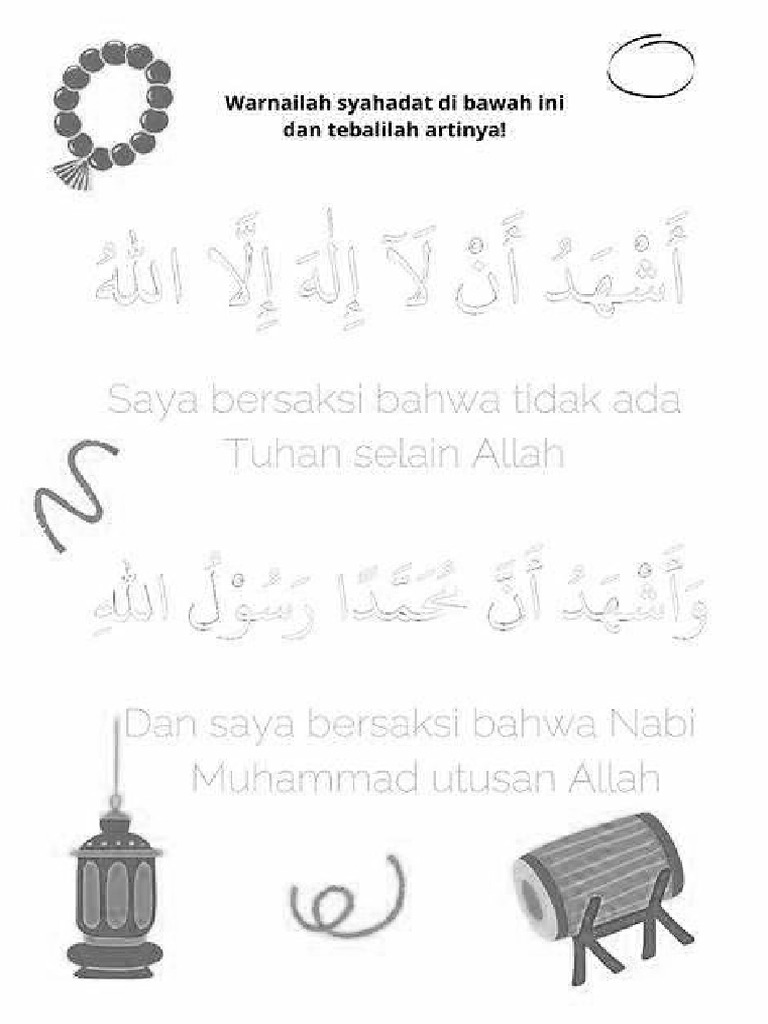 Warnailah syahadat di bawah ini
dan tebalilah artinya!
أَشْهَدُ أَنْ لَآ إِلٰهَ إِلَّا اللهُ
Saya bersaksi bahwa tidak ada
Tuhan selain Allah
وَأَشْهَدُ أَنَّ مُحَمَّدًا رَسُوْلُ اللهِ
Dan saya bersaksi bahwa Nabi
Muhammad utusan Allah